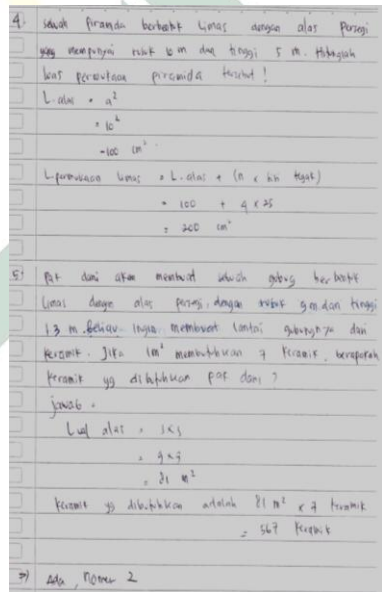 4. sebuah Piramida berbentuk Limas dengan alas Persegi
yang mempunyai rusuk 10 m dan tinggi 5 m. Hitunglah
luas permukaan piramida tersebut !
L. alas = a²
= 10²
= 100 cm²
L. permukaan Limas = L. alas + (n x sisi tegak)
= 100 + 4 x 25
= 200 cm²
5. Pak dani akan membuat sebuah gubug berbentuk
Limas dengan alas persegi, dengan rusuk 9 m dan tinggi
1.3 m. Beliau ingin membuat lantai gubugnya dari
keramik. Jika 1m² membutuhkan 7 keramik, berapakah
keramik yg dibutuhkan pak dani ?
jawab =
Luas alas = s x s
= 9 x 9
= 81 m²
keramik yg dibutuhkan adalah 81 m² x 7 keramik
= 567 keramik
=> Ada, nomer 2